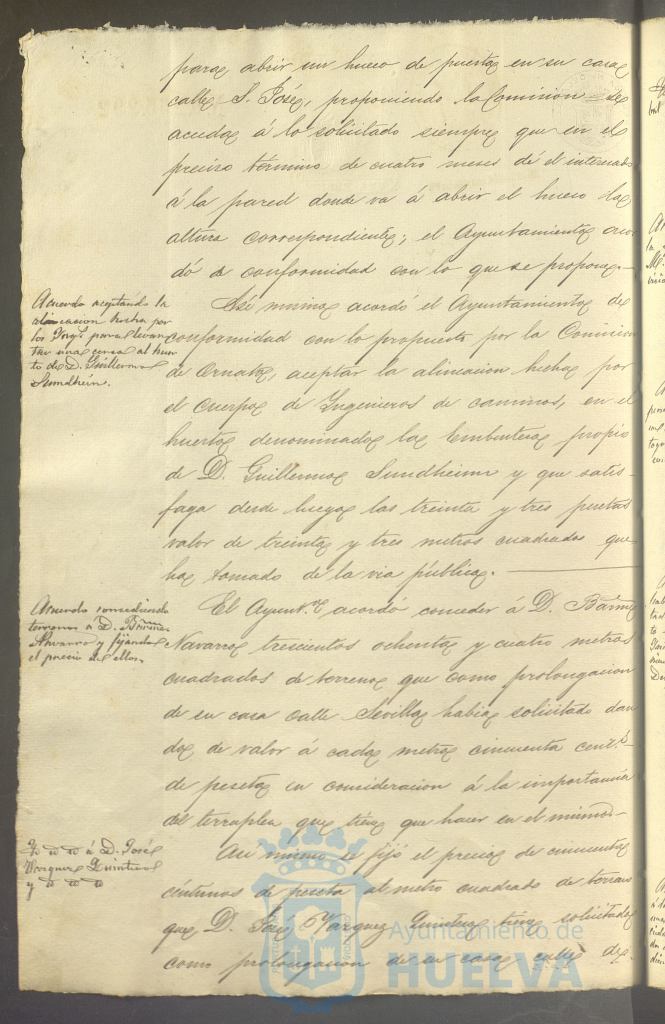 para abrir un hueco de puerta en su casa
calle S. José, proponiendo la Comision se
acceda á lo solicitado siempre que en el
preciso término de cuatro meses dé el interesado
á la pared donde va á abrir el hueco la
altura correspondiente; el Ayuntamiento acor
dó de conformidad con lo que se propone.
Acuerdo aceptando la
alineacion hecha por
los Ings. para levan
tar una cerca al huer
to de D. Guillermo
Sundheim.
Asi mismo acordó el Ayuntamiento de
conformidad con lo propuesto por la Comision
de Ornato, aceptar la alineacion hecha por
el Cuerpo de Ingenieros de caminos, en el
huerto denominado la Embutera propio
de D. Guillermo Sundheim y que satis-
faga desde luego las treinta y tres pesetas
valor de treinta y tres metros cuadrados que
ha tomado de la via pública.
Acuerdo concediendo
terrenos á D. Bármé
Navarro y fijando
el precio de ellos.
El Ayunt.º acordó conceder á D. Barmé
Navarro trescientos ochenta y cuatro metros
cuadrados de terreno que como prolongacion
de su casa calle Sevilla habia solicitado dan
do de valor á cada metro cincuenta cent.s
de peseta en consideracion á la importancia
del terraplen que tiene que hacer en el mismo.
Yd id id á D. José
Vazquez Quintero
y id id id
Asi mismo se fijó el precio de cincuenta
céntimos de peseta al metro cuadrado de terreno
que D. José Vazquez Quintero tiene solicitado
como prolongacion de su casa calle de
Ayuntamiento de
HUELVA